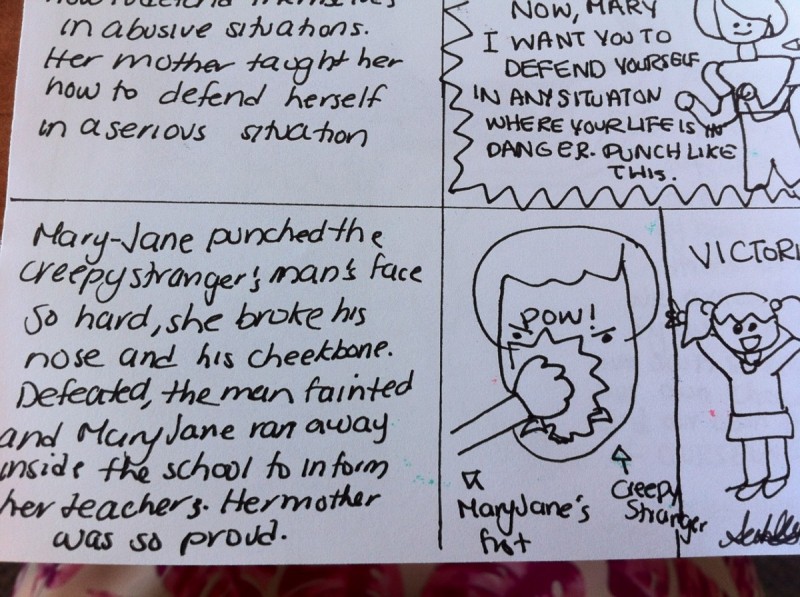 in abusive situations.
Her mother taught her
how to defend herself
in a serious situation
NOW, MARY
I WANT YOU TO
DEFEND YOURSELF
IN ANY SITUATON
WHERE YOUR LIFE IS IN
DANGER. PUNCH LIKE
THIS.
Mary-Jane punched the
creepy stranger's man's face
so hard, she broke his
nose and his cheekbone.
Defeated, the man fainted
and Mary Jane ran away
inside the school to inform
her teachers. Her mother
was so proud.
POW!
Mary Jane's
fist
Creepy
Stranger
VICTORI